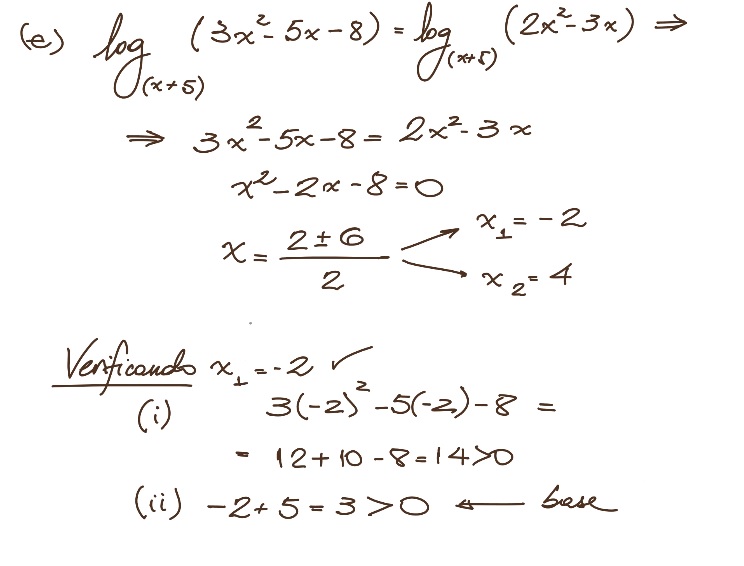 (e) log_(x+5) (3x²-5x-8) = log_(x+5) (2x²-3x) ⇒
⇒ 3x²-5x-8 = 2x²-3x
x²-2x-8=0
x = (2±6)/2 → x₁=-2
→ x₂=4
Verificando x₁=-2 ✓
(i) 3(-2)²-5(-2)-8 =
= 12+10-8=14>0
(ii) -2+5=3>0 ← base